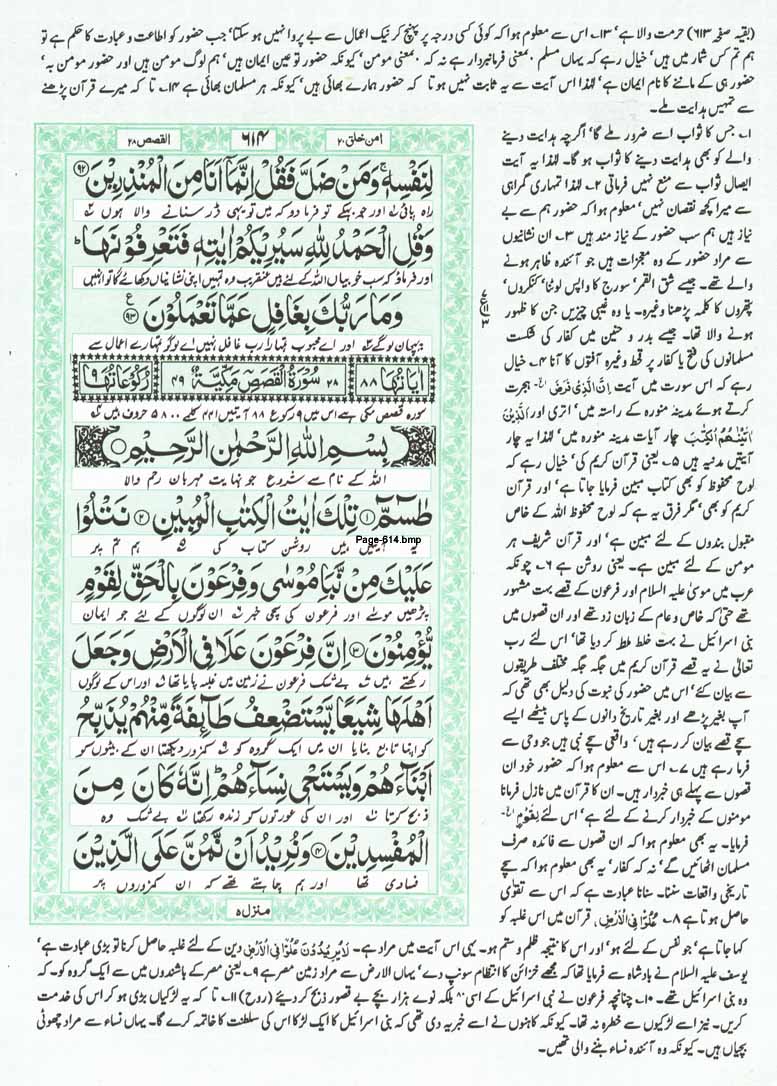 (بقیہ صفحہ ۶۱۳) حرمت والا ہے‘ ۱۳۔ اس سے معلوم ہوا کہ کوئی کسی درجہ پر پہنچ کر نیک اعمال سے بے پروا نہیں ہو سکتا‘ جب حضور کو اطاعت و عبادت کا حکم ہے تو
ہم تم کس شمار میں ہیں‘ خیال رہے کہ یہاں مسلم بمعنی فرمانبردار ہے نہ کہ بمعنی مومن‘ کیونکہ حضور تو عین ایمان ہیں‘ ہم لوگ مومن ہیں اور حضور مومن بہ‘
حضور ہی کے ماننے کا نام ایمان ہے‘ لہٰذا اس آیت سے یہ ثابت نہیں ہوتا کہ حضور ہمارے بھائی ہیں‘ کیونکہ ہر مسلمان بھائی ہے ۱۴۔ تا کہ میرے قرآن پڑھنے
سے تمہیں ہدایت ملے۔
القصص ۲۸
۶۱۴
امن خلق ۲۰
لِنَفْسِهٖ ۚ وَمَنْ ضَلَّ فَقُلْ اِنَّمَاۤ اَنَا مِنَ الْمُنْذِرِیْنَ ۹۲
راہ پائی اور جو بہکے تو فرما دو کہ میں تو یہی ڈر سنانے والا ہوں
وَقُلِ الْحَمْدُ لِلّٰهِ سَیُرِیْكُمْ اٰیٰتِهٖ فَتَعْرِفُوْنَهَا ؕ
اور فرماؤ کہ سب خوبیاں اللہ کے لئے ہیں عنقریب وہ تمہیں اپنی نشانیاں دکھائے گا تو انہیں
وَمَا رَبُّكَ بِغَافِلٍ عَمَّا تَعْمَلُوْنَ ۹۳
پہچان لو گے اور اے محبوب تمہارا رب غافل نہیں اے لوگو تمہارے اعمال سے
اٰیَاتُهَا ۸۸
۲۸ سُوْرَةُ الْقَصَصِ مَكِّیَّةٌ ۴۹
رُكُوْعَاتُهَا ۹
سورہ قصص مکی ہے اس میں ۹ رکوع ۸۸ آیتیں ۴۴۱ کلمے ۵۸۰۰ حروف ہیں
بِسْمِ اللّٰهِ الرَّحْمٰنِ الرَّحِیْمِ
اللہ کے نام سے شروع جو نہایت مہربان رحم والا
طٰسٓمّٓ ۱ تِلْكَ اٰیٰتُ الْكِتٰبِ الْمُبِیْنِ ۲ نَتْلُوْا
Page-614.bmp
یہ آیتیں ہیں روشن کتاب کی ہم تم پر
عَلَیْكَ مِنْ نَّبَاِ مُوْسٰی وَفِرْعَوْنَ بِالْحَقِّ لِقَوْمٍ
پڑھیں موسٰے اور فرعون کی سچی خبر ان لوگوں کے لئے جو ایمان
یُّؤْمِنُوْنَ ۳ اِنَّ فِرْعَوْنَ عَلَا فِی الْاَرْضِ وَجَعَلَ
رکھتے ہیں بے شک فرعون نے زمین میں غلبہ پایا تھا اور اس کے لوگوں
اَهْلَهَا شِیَعًا یَّسْتَضْعِفُ طَآئِفَةً مِّنْهُمْ یُذَبِّحُ
کو اپنا تابع بنایا ان میں ایک گروہ کو کمزور دیکھتا ان کے بیٹوں کو
اَبْنَآءَهُمْ وَیَسْتَحْیٖ نِسَآءَهُمْ ؕ اِنَّهٗ كَانَ مِنَ
ذبح کرتا اور ان کی عورتوں کو زندہ رکھتا بے شک وہ
الْمُفْسِدِیْنَ ۴ وَنُرِیْدُ اَنْ نَّمُنَّ عَلَی الَّذِیْنَ
فسادی تھا اور ہم چاہتے تھے کہ ان کمزوروں پر
منزل ۵
۱۔ جس کا ثواب اسے ضرور ملے گا‘ اگرچہ ہدایت دینے
والے کو بھی ہدایت دینے کا ثواب ہو گا۔ لہٰذا یہ آیت
ایصال ثواب سے منع نہیں فرماتی ۲۔ لہٰذا تمہاری گمراہی
سے میرا کچھ نقصان نہیں‘ معلوم ہوا کہ حضور ہم سے بے
نیاز ہیں ہم سب حضور کے نیاز مند ہیں ۳۔ ان نشانیوں
سے مراد حضور کے وہ معجزات ہیں جو آئندہ ظاہر ہونے
والے تھے۔ جیسے شق القمر‘ سورج کا واپس لوٹنا‘ کنکروں‘
پتھروں کا کلمہ پڑھنا وغیرہ۔ یا وہ غیبی چیزیں جن کا ظہور
ہونے والا تھا۔ جیسے بدر و حنین میں کفار کی شکست
مسلمانوں کی فتح یا کفار پر قحط وغیرہ آفتوں کا آنا ۴۔ خیال
رہے کہ اس سورت میں آیت اِنَّ الَّذِیْ فَرَضَ الخ۔ ہجرت
کرتے ہوئے مدینہ منورہ کے راستہ میں‘ اتری اور اَلَّذِیْنَ
اٰتَیْنٰهُمُ الْكِتٰبَ چار آیات مدینہ منورہ میں‘ لہٰذا یہ چار
آیتیں مدنیہ ہیں ۵۔ یعنی قرآن کریم کی‘ خیال رہے کہ
لوح محفوظ کو بھی کتاب مبین فرمایا جاتا ہے‘ اور قرآن
کریم کو بھی‘ مگر فرق یہ ہے کہ لوح محفوظ اللہ کے خاص
مقبول بندوں کے لئے مبین ہے‘ اور قرآن شریف ہر
مومن کے لئے مبین ہے۔ یعنی روشن ہے ۶۔ چونکہ
عرب میں موسیٰ علیہ السلام اور فرعون کے قصے بہت مشہور
تھے حتیٰ کہ خاص و عام کے زبان زد تھے اور ان قصوں میں
بنی اسرائیل نے بہت خلط ملط کر دیا تھا‘ اس لئے رب
تعالیٰ نے یہ قصے قرآن کریم میں جگہ جگہ مختلف طریقوں
سے بیان کئے‘ اس میں حضور کی نبوت کی دلیل بھی تھی کہ
آپ بغیر پڑھے اور بغیر تاریخ دانوں کے پاس بیٹھے ایسے
سچے قصے بیان کر رہے ہیں‘ واقعی سچے نبی ہیں جو وحی سے
فرما رہے ہیں ۷۔ اس سے معلوم ہوا کہ حضور خود ان
قصوں سے پہلے ہی خبردار ہیں۔ ان کا قرآن میں نازل فرمانا
مومنوں کے خبردار کرنے کے لئے ہے‘ اس لئے لِقَوْمٍ الخ۔
فرمایا۔ یہ بھی معلوم ہوا کہ ان قصوں سے فائدہ صرف
مسلمان اٹھائیں گے‘ نہ کہ کفار‘ یہ بھی معلوم ہوا کہ سچے
تاریخی واقعات سننا۔ سنانا عبادت ہے کہ اس سے تقوٰی
حاصل ہوتا ہے ۸۔ عُلُوًّا فِی الْاَرْضِ، قرآن میں اس غلبہ کو
کہا جاتا ہے‘ جو نفس کے لئے ہو‘ اور اس کا نتیجہ ظلم و ستم ہو۔ یہی اس آیت میں مراد ہے۔ لَا یُرِیْدُوْنَ عُلُوًّا فِی الْاَرْضِ دین کے لئے غلبہ حاصل کرنا تو بڑی عبادت ہے‘
یوسف علیہ السلام نے بادشاہ سے فرمایا تھا کہ مجھے خزائن کا انتظام سونپ دے‘ یہاں الارض سے مراد زمین مصر ہے ۹۔ یعنی مصر کے باشندوں میں سے ایک گروہ کو۔ کہ
وہ بنی اسرائیل تھے۔ ۱۰۔ چنانچہ فرعون نے بنی اسرائیل کے اسی ۸۰ بلکہ نوے ہزار بچے بے قصور ذبح کر دیئے (روح) ۱۱۔ تا کہ یہ لڑکیاں بڑی ہو کر اس کی خدمت
کریں۔ نیز اسے لڑکیوں سے خطرہ نہ تھا۔ کیونکہ کاہنوں نے اسے خبر یہ دی تھی کہ بنی اسرائیل کا ایک لڑکا اس کی سلطنت کا خاتمہ کرے گا۔ یہاں نساء سے مراد چھوٹی
بچیاں ہیں۔ کیونکہ وہ آئندہ نساء بننے والی تھیں۔